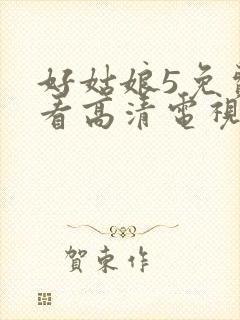 好姑娘5免
看高清電視
賀東作